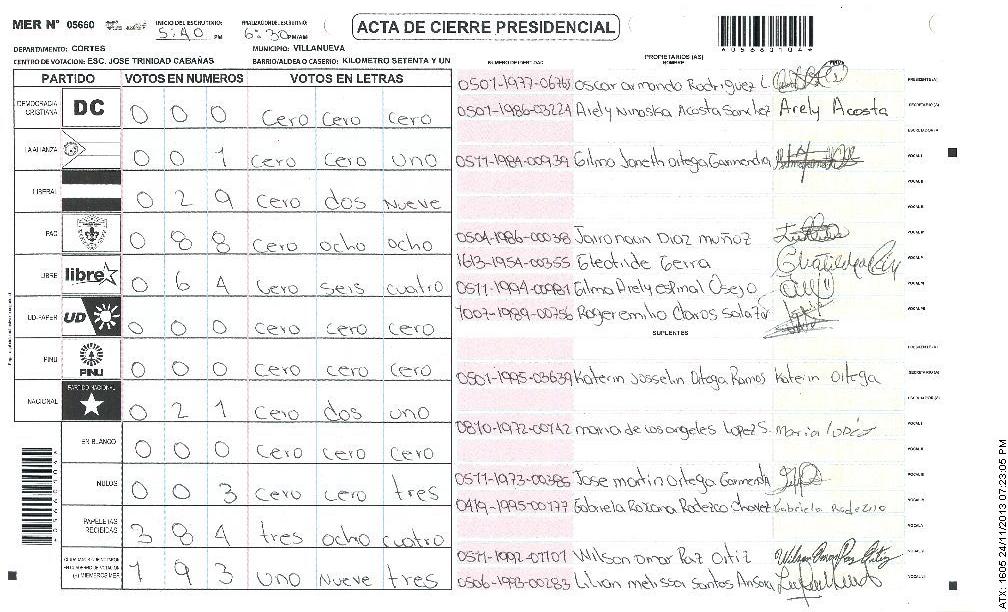 MER Nº 05660 INICIO DEL ESCRUTINIO: 5:40 PM FINALIZACION DEL ESCRUTINIO: 6:30 PM/AM ACTA DE CIERRE PRESIDENCIAL
DEPARTAMENTO: CORTES MUNICIPIO: VILLANUEVA
CENTRO DE VOTACION: ESC. JOSE TRINIDAD CABAÑAS BARRIO/ALDEA O CASERIO: KILOMETRO SETENTA Y UN
PARTIDO VOTOS EN NUMEROS VOTOS EN LETRAS
DEMOCRACIA CRISTIANA DC 0 0 0 cero cero cero
LA ALIANZA 0 0 1 cero cero uno
LIBERAL 0 2 9 cero dos nueve
PAC 0 8 8 cero ocho ocho
LIBRE libre 0 6 4 cero seis cuatro
UD-FAPER UD 0 0 0 cero cero cero
PINU PINU 0 0 0 cero cero cero
NACIONAL PARTIDO NACIONAL 0 2 1 cero dos uno
EN BLANCO 0 0 0 cero cero cero
NULOS 0 0 3 cero cero tres
PAPELETAS RECIBIDAS 3 8 4 tres ocho cuatro
1 9 3 uno nueve tres
NUMERO DE IDENTIDAD PROPIETARIOS (AS) NOMBRE
Oscar armando Rodriguez L. PRESIDENTE(A)
0501-1986-03224 Arely Ninoska Acosta Sanchez Arely Acosta SECRETARIO(A)
ESCRUTADOR(A)
0511-1984-00939 Gilma Janeth Ortega Garmendia VOCAL I
VOCAL II
VOCAL III
0504-1986-00038 Jairo naun Diaz muñoz VOCAL IV
1613-1954-00355 VOCAL V
0511-1994-00981 Gilma Arely espinal Osejo VOCAL VI
Roger emilio Claros VOCAL VII
SUPLENTES
PRESIDENTE(A)
0501-1995-03639 Katerin Josselin Ortega Ramos Katerin Ortega SECRETARIO(A)
ESCRUTADOR(A)
0810-1972-00142 maria de los angeles Lopez S. Maria Lopez VOCAL I
VOCAL II
0511-1973-00386 Jose martin Ortega Garmendia VOCAL III
0419-1995-00177 Gabriela VOCAL IV
VOCAL V
0511-1992-01101 Wilson omar Paz Ortiz VOCAL VI
0506-1993-00283 melissa Santos VOCAL VII
ATX: 1605 24/11/2013 07:23:05 PM